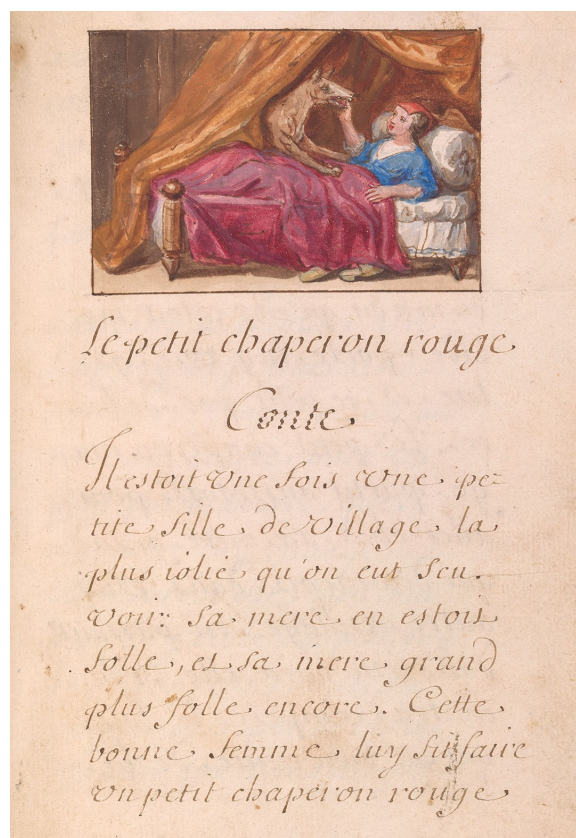 Le petit chaperon rouge
Conte
Il estoit vne fois vne pe=
tite fille de village la
plus iolie qu'on eut sçeu.
voir: sa mere en estoit
folle, et sa mere grand
plus folle encore. Cette
bonne femme luy fit faire
vn petit chaperon rouge